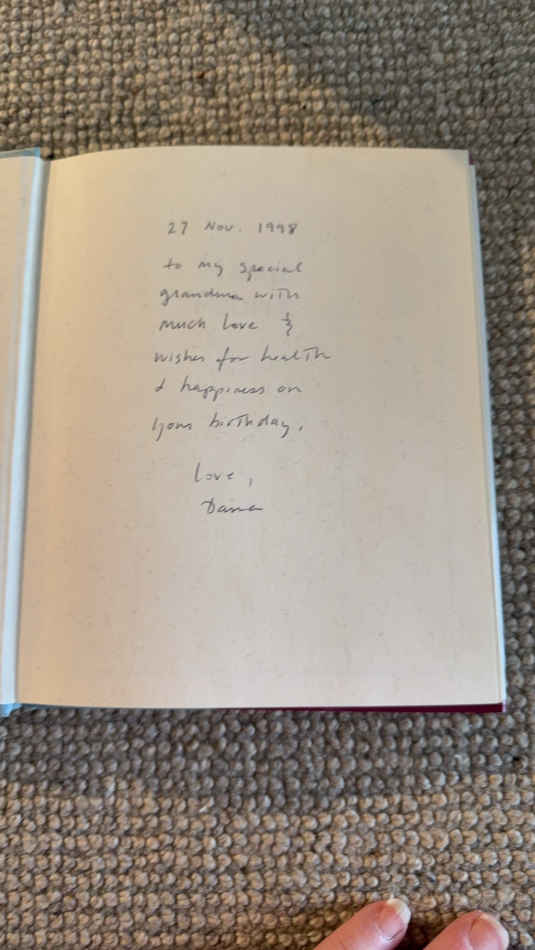 27 Nov. 1998
to my special
grandma with
much love &
wishes for health
& happiness on
your birthday,
love,
Dana